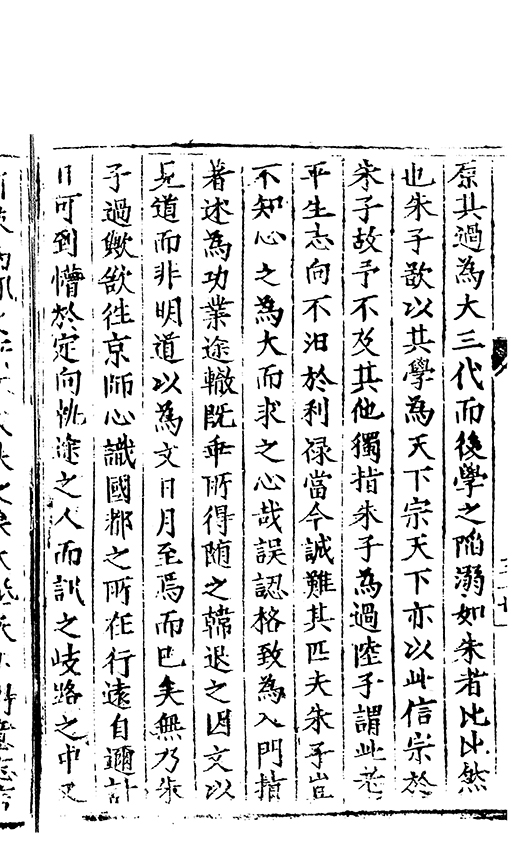 原其過為大三代而後學之陷溺如朱者比比然
也朱子欲以其學為天下宗天下亦以此信宗於
朱子故予不及其他獨指朱子為過陸子謂此老
平生志向不汨於利祿當今誠難其匹夫朱子豈
不知心之為大而求之心哉誤認格致為入門指
著述為功業途轍既乖所得随之韓退之因文以
見道而非明道以為文日月至焉而巳矣無乃朱
子過歟欲徃京師心識國都之所在行遠自邇計
日可到懵於定向執途之人而訊之岐路之中